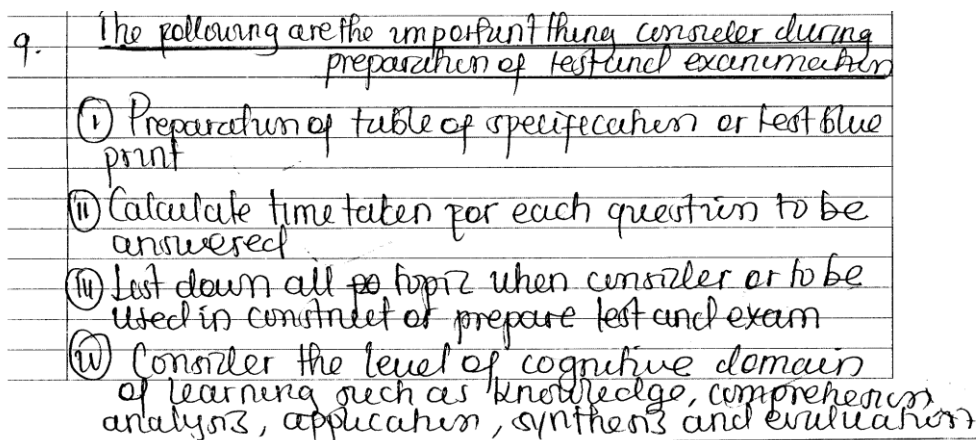 9. The following are the important thing consider during
preparation of test and examination
(i) Preparation of table of specification or test blue
print
(ii) Calculate time taken for each question to be
answered
(iii) List down all topiz when consider or to be
used in construct or prepare test and exam
(iv) Consider the level of cognitive domain
of learning such as knowledge, comprehension,
analysis, application, synthesis and evaluation